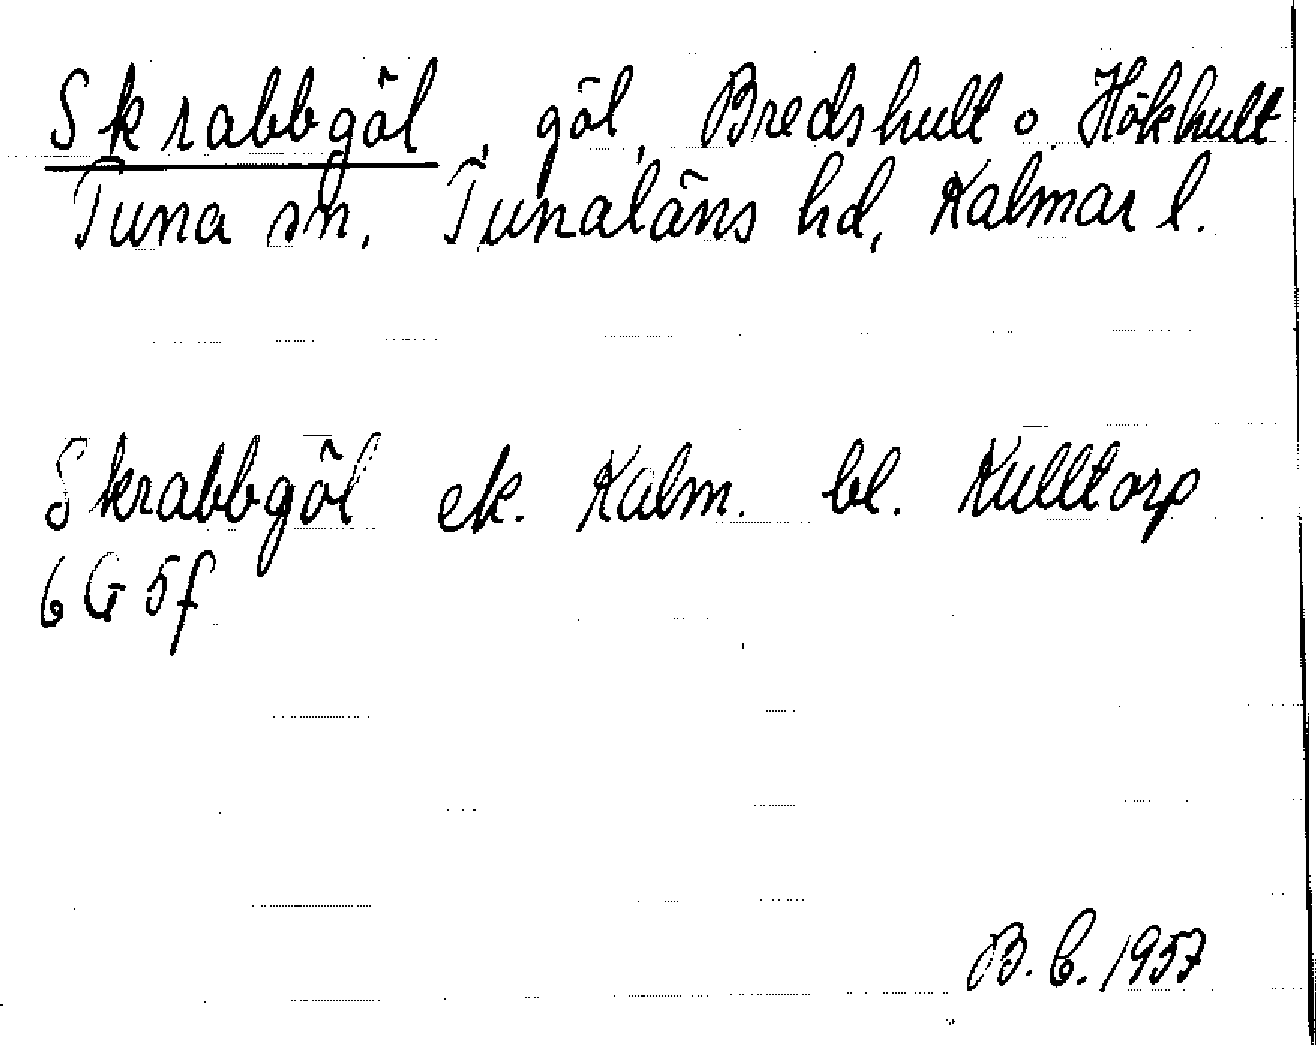 Skrabbgöl, göl, Bredshult o. Hökhult
Tuna sn, Tunaläns hd, Kalmar l.
Skrabbgöl ek. Kalm. bl. Kulltorp
6G 5f
B.C. 1957